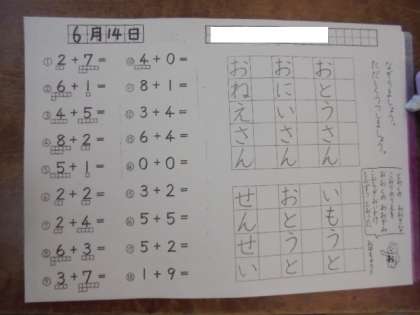 6月14日
① 2+7=
② 6+1=
③ 4+5=
④ 8+2=
⑤ 5+1=
⑥ 2+2=
⑦ 2+4=
⑧ 6+3=
⑨ 3+7=
⑩ 4+0=
⑪ 8+1=
⑫ 3+4=
⑬ 6+4=
⑭ 0+0=
⑮ 3+2=
⑯ 5+5=
⑰ 5+2=
⑱ 1+9=
おとうさん
おにいさん
おねえさん
いもうと
おとうと
せんせい